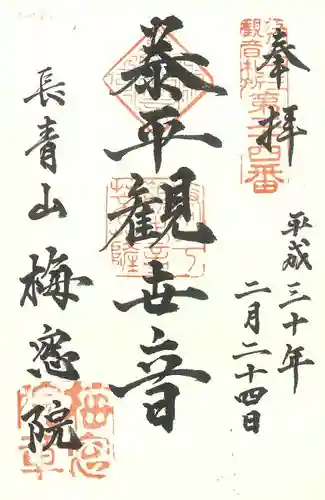 奉拝
江戸
觀音札所
第二十四番
平成三十年
二月二十四日
泰平觀世音
長青山
梅窓院
梅窓院章